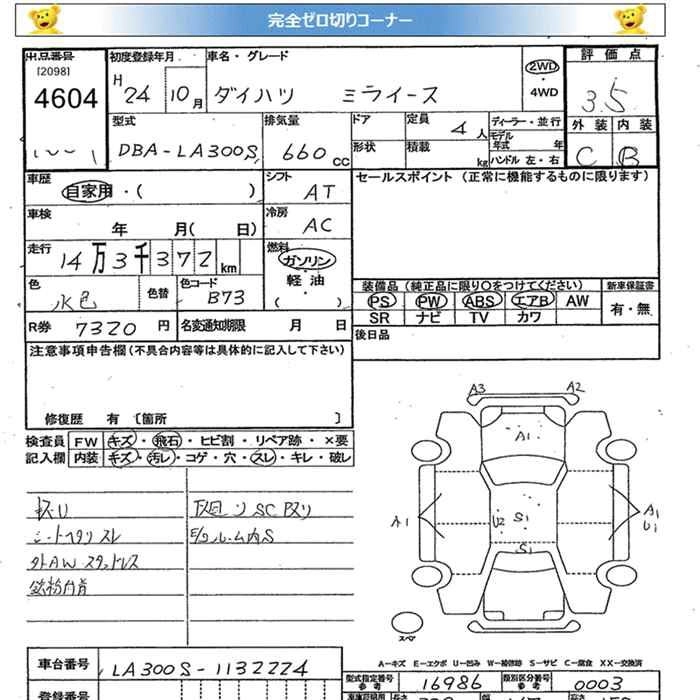 完全ゼロ切りコーナー
出品番号 初度登録年月 車名・グレード 評価点
[2098] H 2WD
4604 24 10月 ダイハツ ミライース ・ 3.5
4WD
型式 排気量 ドア 定員 4人 ディーラー・並行 外装 内装
DBA-LA300S 660cc 形状 積載 kg モデル年式 年 C B
ハンドル 左・右
車歴 シフト セールスポイント (正常に機能するものに限ります)
自家用・( ) AT
車検 冷房
年 月( 日) AC
走行 燃料
14万3千372km ガソリン
・
色 色替 色コード 軽油 装備品 (純正品に限り〇をつけてください) 新車保証書
水色 B73 ・ PS PW ABS エアB AW 有・無
( ) SR ナビ TV カワ
R券 7320円 名変通知期限 月 日 後日品
注意事項申告欄(不具合内容等は具体的に記入して下さい)
修復歴 有 [箇所 ]
検査員 FW キズ・飛石・ヒビ割・リペア跡・×要
記入欄 内装 キズ・汚レ・コゲ・穴・スレ・キレ・破レ
シートヘタリスレ
外AWスタッドレス
A3 A2
A1
A1 U2 S1 A1
U1
S1
スペア
A-キズ E-エクボ U-凹み W-補修跡 S-サビ C-腐食 XX-交換済
車台番号 LA300S-1132224
型式指定番号 参考 16986 類別区分番号 参考 0003
登録番号